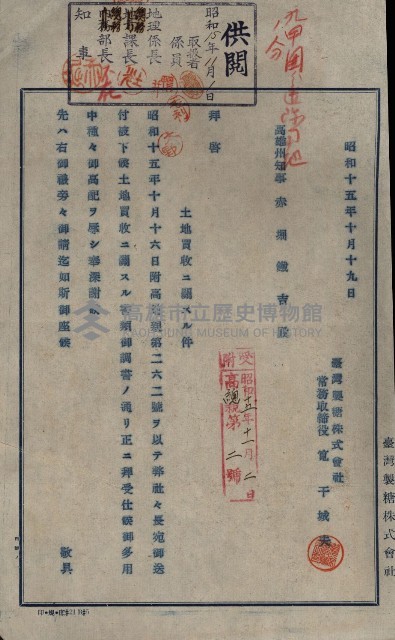 供閲
昭和15年11月1日
取扱者
係員
地理係長
地方課長
總務部長
知事
昭和十五年十月十九日
高雄州知事 赤堀鐵吉殿
臺灣製糖株式會社
常務取締役 筧干城夫
土地買收ニ關スル件
拜啓
昭和十五年十月十六日附高總親第二六二號ヲ以テ弊社々長宛御送
付被下候土地買收ニ關スル書類御調書ノ通リ正ニ拜受仕候御多用
中種々御高配ヲ辱シ奉深謝候
先ハ右御禮旁々御請迄如斯御座候
敬具
受附
昭和十五年十一月二日
高總親第二號
臺灣製糖株式會社
高雄市立歷史博物館
KAOHSIUNG MUSEUM OF HISTORY